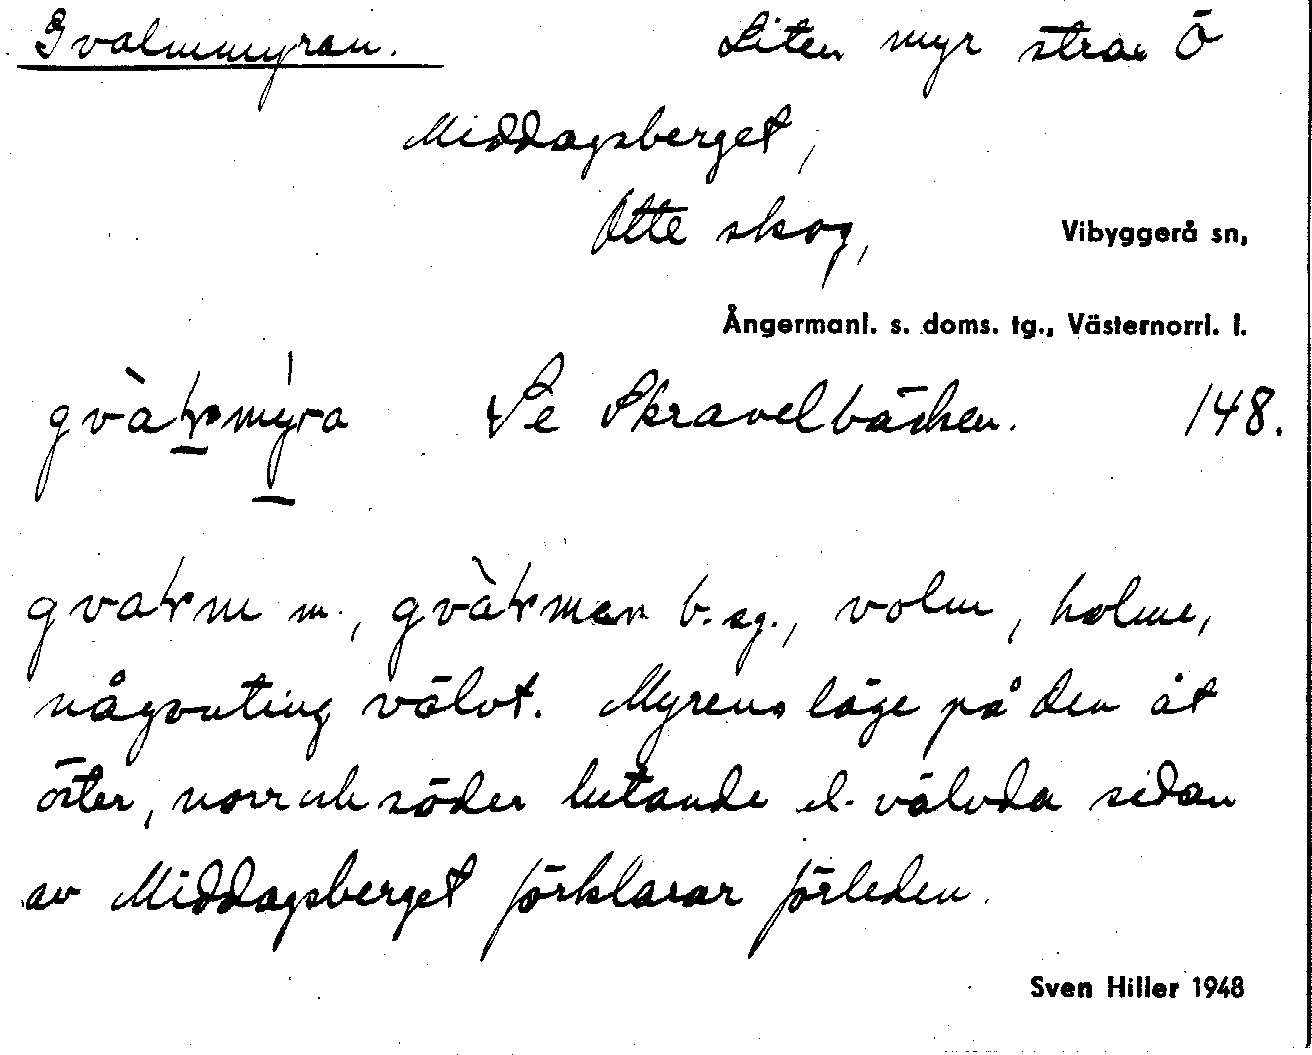 Gvalmmyran. Liten myr strax Ö
Middagsberget,
Utte skog, Vibyggerå sn,
Ångermanl. s. doms. tg., Västernorrl. l.
Se Skravelbäcken. 148.
m., b. sg., volm, holme,
någonting välvt. Myrens läge på den åt
öster, norr och söder lutande el. välvda sidan
av Middagsberget förklarar förleden.
Sven Hiller 1948